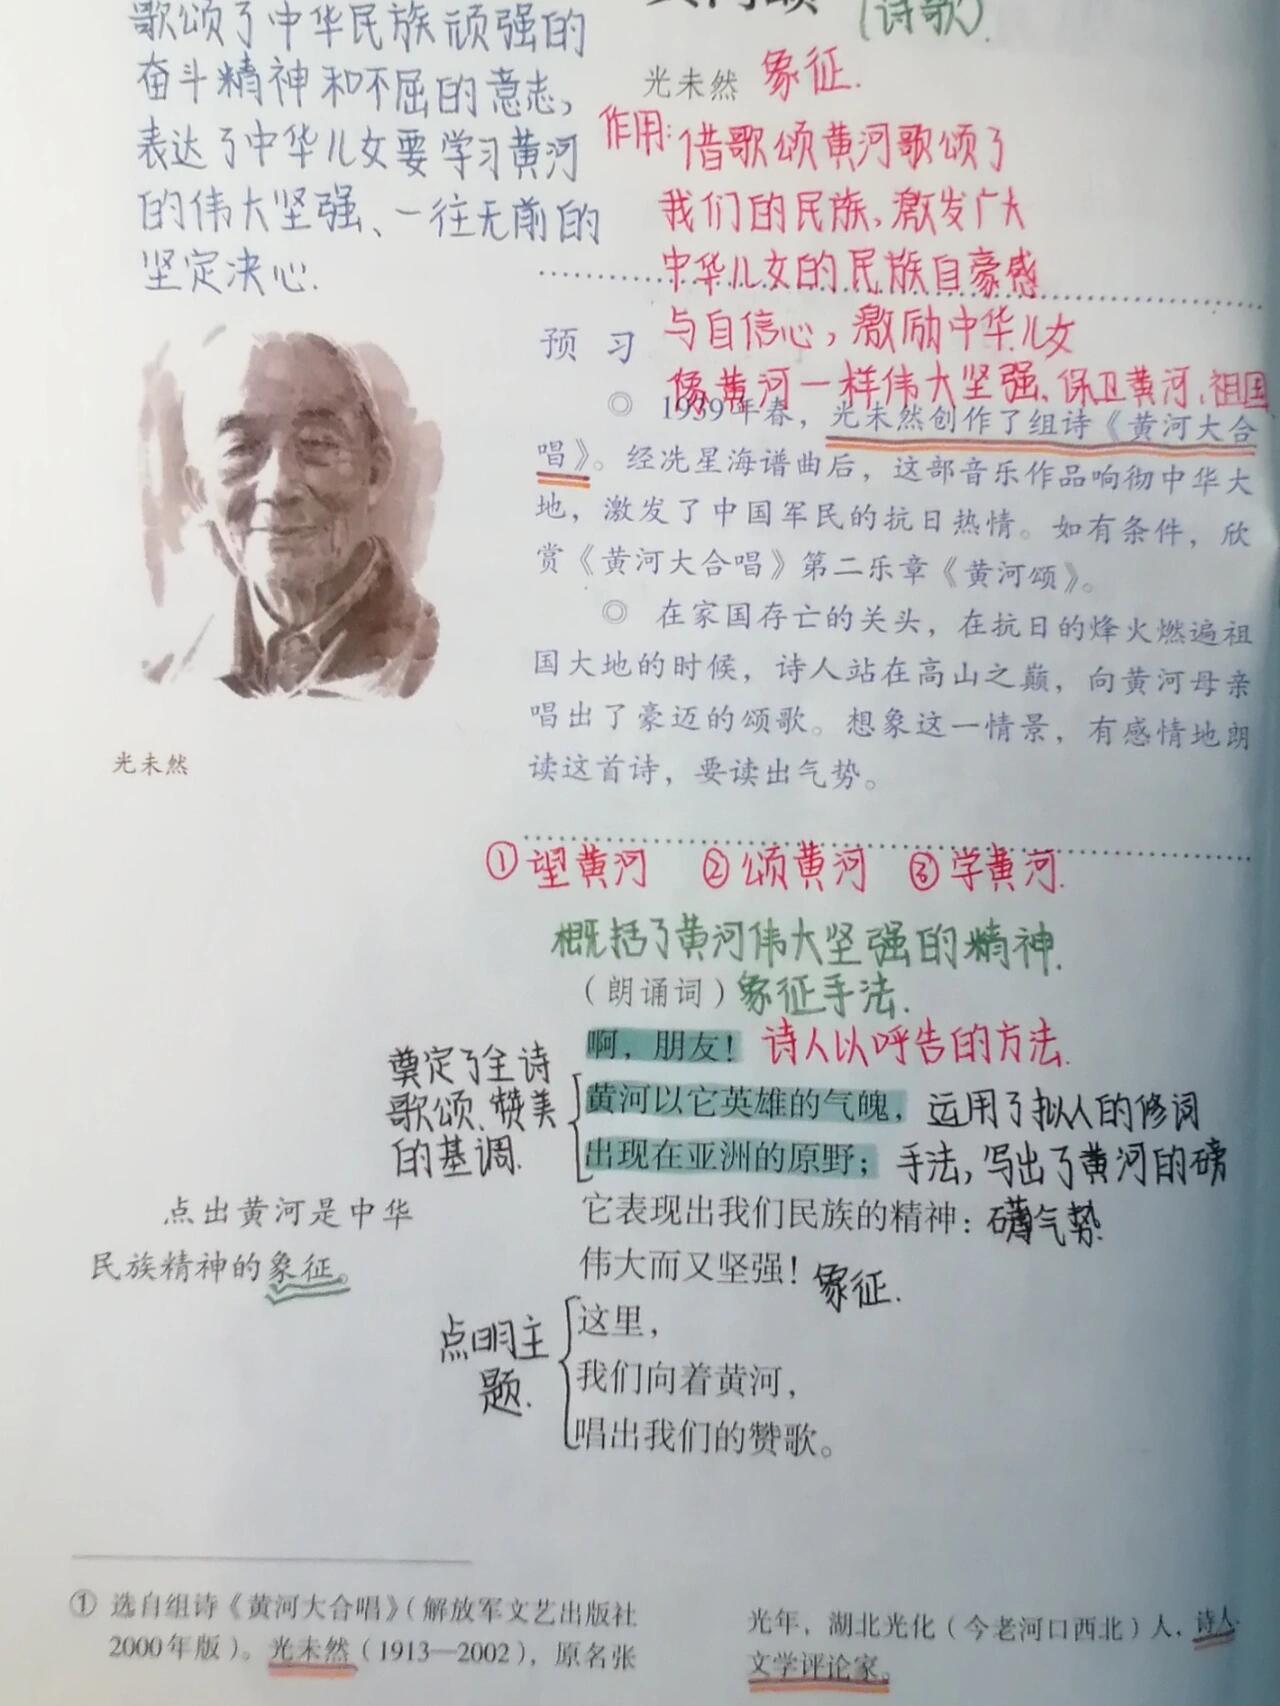 歌颂了中华民族顽强的
奋斗精神和不屈的意志，
表达了中华儿女要学习黄河
的伟大坚强、一往无前的
坚定决心.
(诗歌).
光未然 象征.
作用:借歌颂黄河歌颂了
我们的民族,激发广大
中华儿女的民族自豪感
与自信心，激励中华儿女
像黄河一样伟大坚强、保卫黄河、祖国
预 习
◎ 1939年春，光未然创作了组诗《黄河大合
唱》。经冼星海谱曲后，这部音乐作品响彻中华大
地，激发了中国军民的抗日热情。如有条件，欣
赏《黄河大合唱》第二乐章《黄河颂》。
◎ 在家国存亡的关头，在抗日的烽火燃遍祖
国大地的时候，诗人站在高山之巅，向黄河母亲
唱出了豪迈的颂歌。想象这一情景，有感情地朗
读这首诗，要读出气势。
光未然
①望黄河 ②颂黄河 ③学黄河.
概括了黄河伟大坚强的精神.
（朗诵词）象征手法.
啊，朋友！ 诗人以呼告的方法.
黄河以它英雄的气魄，运用了拟人的修词
出现在亚洲的原野；手法,写出了黄河的磅
奠定了全诗
歌颂、赞美
的基调.
它表现出我们民族的精神：礴气势.
伟大而又坚强！象征.
点出黄河是中华
民族精神的象征。
点明主
题.
这里，
我们向着黄河，
唱出我们的赞歌。
① 选自组诗《黄河大合唱》（解放军文艺出版社
2000年版）。光未然（1913—2002），原名张
光年，湖北光化（今老河口西北）人，诗人、
文学评论家。